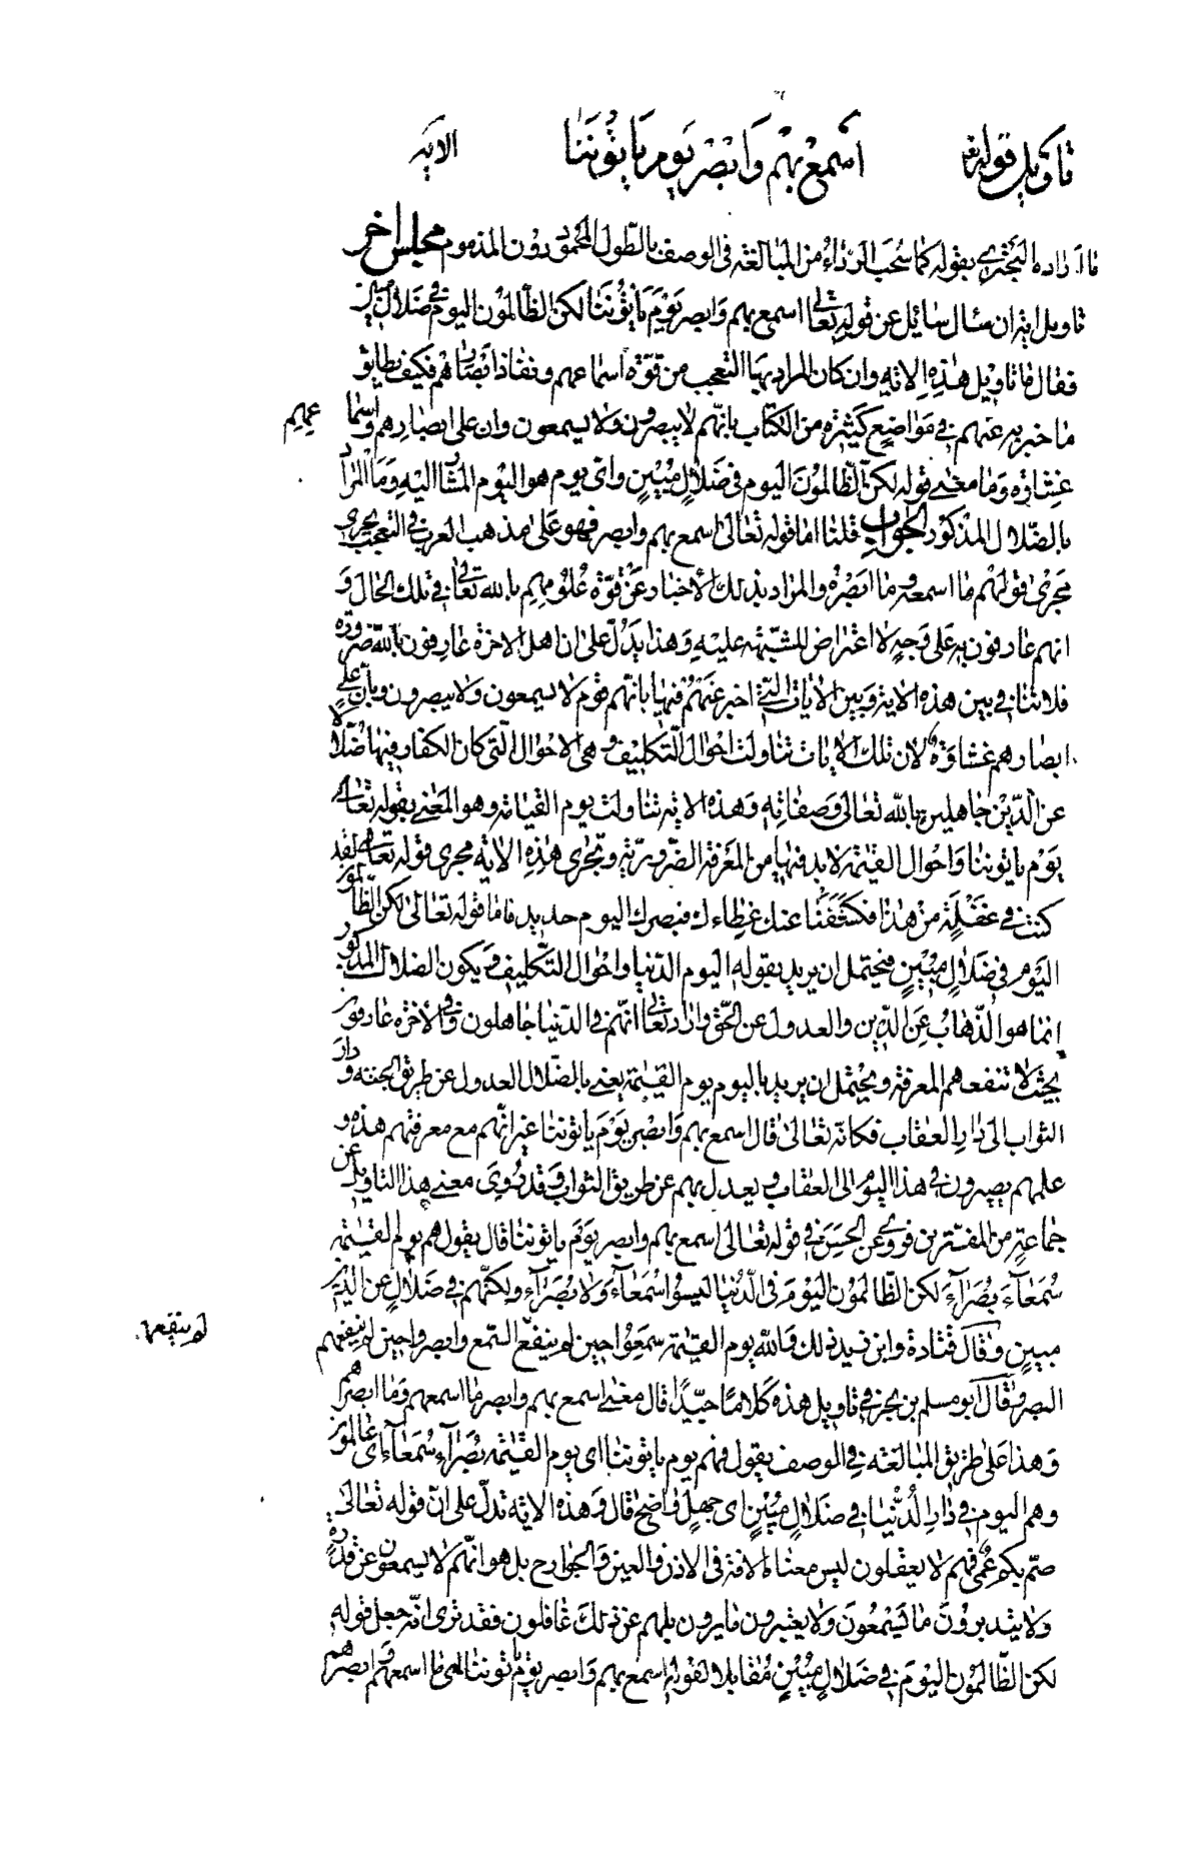 تاويل قوله تعالى اسمع بهم وابصر يوم ياتوننا الايه
ما اراده البحتري بقوله كما سحب الرداء من المبالغة في الوصف بالطول المحمود دون المذموم مجلس اخر
تاويل اية ان سال سائل عن قوله تعالى اسمع بهم وابصر يوم ياتوننا لكن الظالمون اليوم في ضلال مبين
فقال ما تاويل هذه الاية وان كان المراد بها التعجب من قوة اسماعهم ونفاذ ابصارهم فكيف يطابق
ما خبر به عنهم في مواضع كثيرة من الكتاب بانهم لا يبصرون ولا يسمعون وان على ابصارهم واسما عهم
غشاوة وما معنى قوله لكن الظالمون اليوم في ضلال مبين واي يوم هو اليوم المشار اليه وما المراد
بالضلال المذكور الجواب قلنا اما قوله تعالى اسمع بهم وابصر فهو على مذهب العرب في التعجب يجري
مجرى قولهم ما اسمعه وما ابصره والمراد بذلك الاخبار عن قوة علومهم بالله تعالى في تلك الحال و
انهم عارفون به على وجه لا اعتراض للشبهة عليه وهذا يدل على ان اهل الاخرة عارفون بالله ضرورة
فلا تنافي بين هذه الاية وبين الايات التي اخبر عنهم فيها بانهم قوم لا يسمعون ولا يبصرون وبان على
ابصارهم غشاوة لان تلك الايات تناولت احوال التكليف وهي الاحوال التي كان الكفار فيها ضلالا
عن الدين جاهلين بالله تعالى وصفاته وهذه الاية تناولت يوم القيامة وهو المعنى بقوله تعالى
يوم ياتوننا واحوال القيمة لا بد فيها من المعرفة الضرورية وتجري هذه الاية مجرى قوله تعالى لقد
كنت في غفلة من هذا فكشفنا عنك غطاءك فبصرك اليوم حديد فاما قوله تعالى لكن الظالمون
اليوم في ضلال مبين فيحتمل ان يريد بقوله اليوم الدنيا واحوال التكليف ويكون الضلال المذكور
انما هو الذهاب عن الدين والعدول عن الحق واراد تعالى انهم في الدنيا جاهلون وفي الاخرة عارفون
بحيث لا تنفعهم المعرفة ويحتمل ان يريد باليوم يوم القيمة يعني بالضلال العدول عن طريق الجنة ودار
الثواب الى دار العقاب فكانه تعالى قال اسمع بهم وابصر يوم ياتوننا غير انهم مع معرفتهم هذه و
علمهم يصيرون في هذا اليوم الى العقاب ويعدل بهم عن طريق الثواب وقد روي معنى هذا التاويل عن
جماعة من المفسرين فروي عن الحسن في قوله تعالى اسمع بهم وابصر يوم ياتوننا قال يقول هم يوم القيمة
سمعاء بصراء لكن الظالمون اليوم في الدنيا ليسوا سمعاء ولا بصراء ولكنهم في ضلال عن الدين
مبين وقال قتادة وابن زيد ذلك والله يوم القيمة سمعوا حين لم ينفع السمع وابصروا حين لم ينفعهم
لم ينفعهم
البصر وقال ابو مسلم بن بحر في تاويل هذه كلاما جيدا قال معنى اسمع بهم وابصر ما اسمعهم وما ابصرهم
وهذا على طريق المبالغة في الوصف يقول فهم يوم ياتوننا اي يوم القيمة بصراء سمعاء اي عالمون
وهم اليوم في دار الدنيا في ضلال مبين اي جهل واضح قال وهذه الاية تدل على ان قوله تعالى
صم بكم عمي فهم لا يعقلون ليس معناه الافة في الاذن والعين والجوارح بل هو انهم لا يسمعون عن قدرة
ولا يتدبرون ما يسمعون ولا يعتبرون ما يرون بل هم عن ذلك غافلون فقد ترى انه جعل قوله
لكن الظالمون اليوم في ضلال مبين مقابلا لقوله اسمع بهم وابصر يوم ياتوننا اي ما اسمعهم وابصرهم